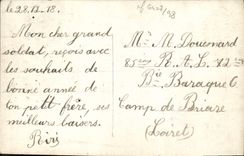 le 28.12-18.
Mon cher grand
soldat, reçois avec
les souhaits de
bonne année de
ton petit frère, ses
meilleurs baisers.
Riri
Mr M. Doucnard
85ème R.A.L. 72ème
Bie Baraque 6
Camp de Briare
(Loiret)